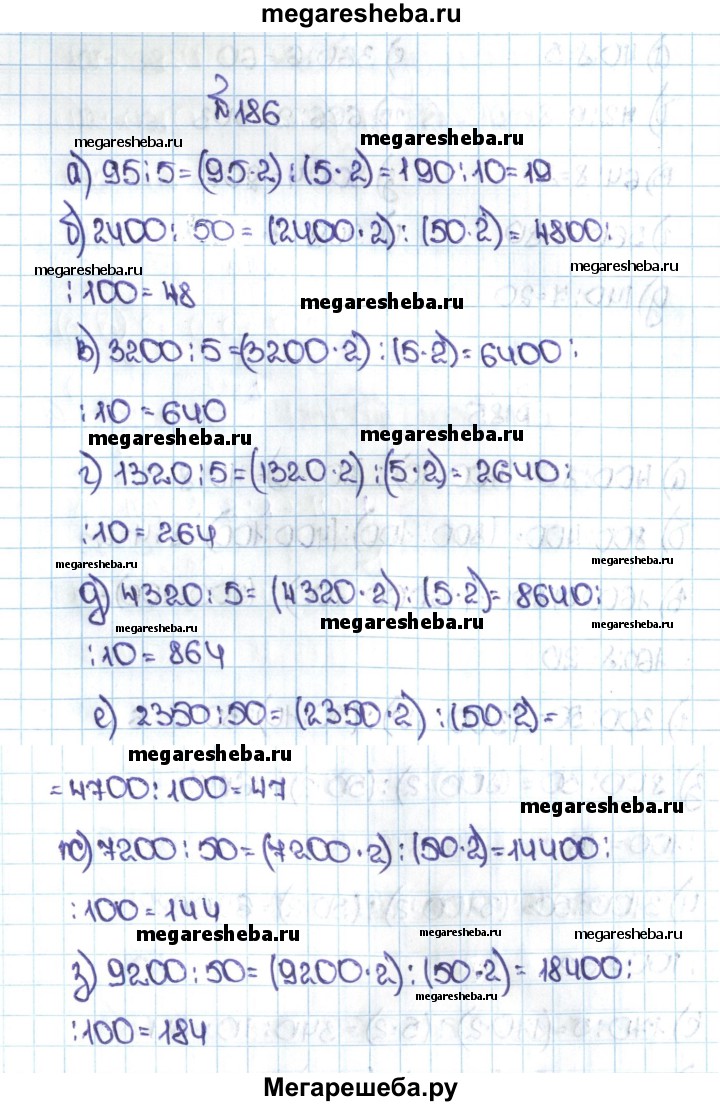 megaresheba.ru
№186
megaresheba.ru megaresheba.ru
а) 95:5=(95·2):(5·2)=190:10=19
б) 2400:50=(2400·2):(50·2)=4800:
megaresheba.ru megaresheba.ru
:100=48
megaresheba.ru
в) 3200:5=(3200·2):(5·2)=6400:
:10=640
megaresheba.ru megaresheba.ru
г) 1320:5=(1320·2):(5·2)=2640:
:10=264
megaresheba.ru megaresheba.ru
д) 4320:5=(4320·2):(5·2)=8640:
megaresheba.ru megaresheba.ru megaresheba.ru
:10=864
е) 2350:50=(2350·2):(50·2)=
megaresheba.ru
=4700:100=47
megaresheba.ru
ж) 7200:50=(7200·2):(50·2)=14400:
:100=144
megaresheba.ru megaresheba.ru megaresheba.ru
з) 9200:50=(9200·2):(50·2)=18400:
megaresheba.ru
:100=184
Мегарешеба.ру